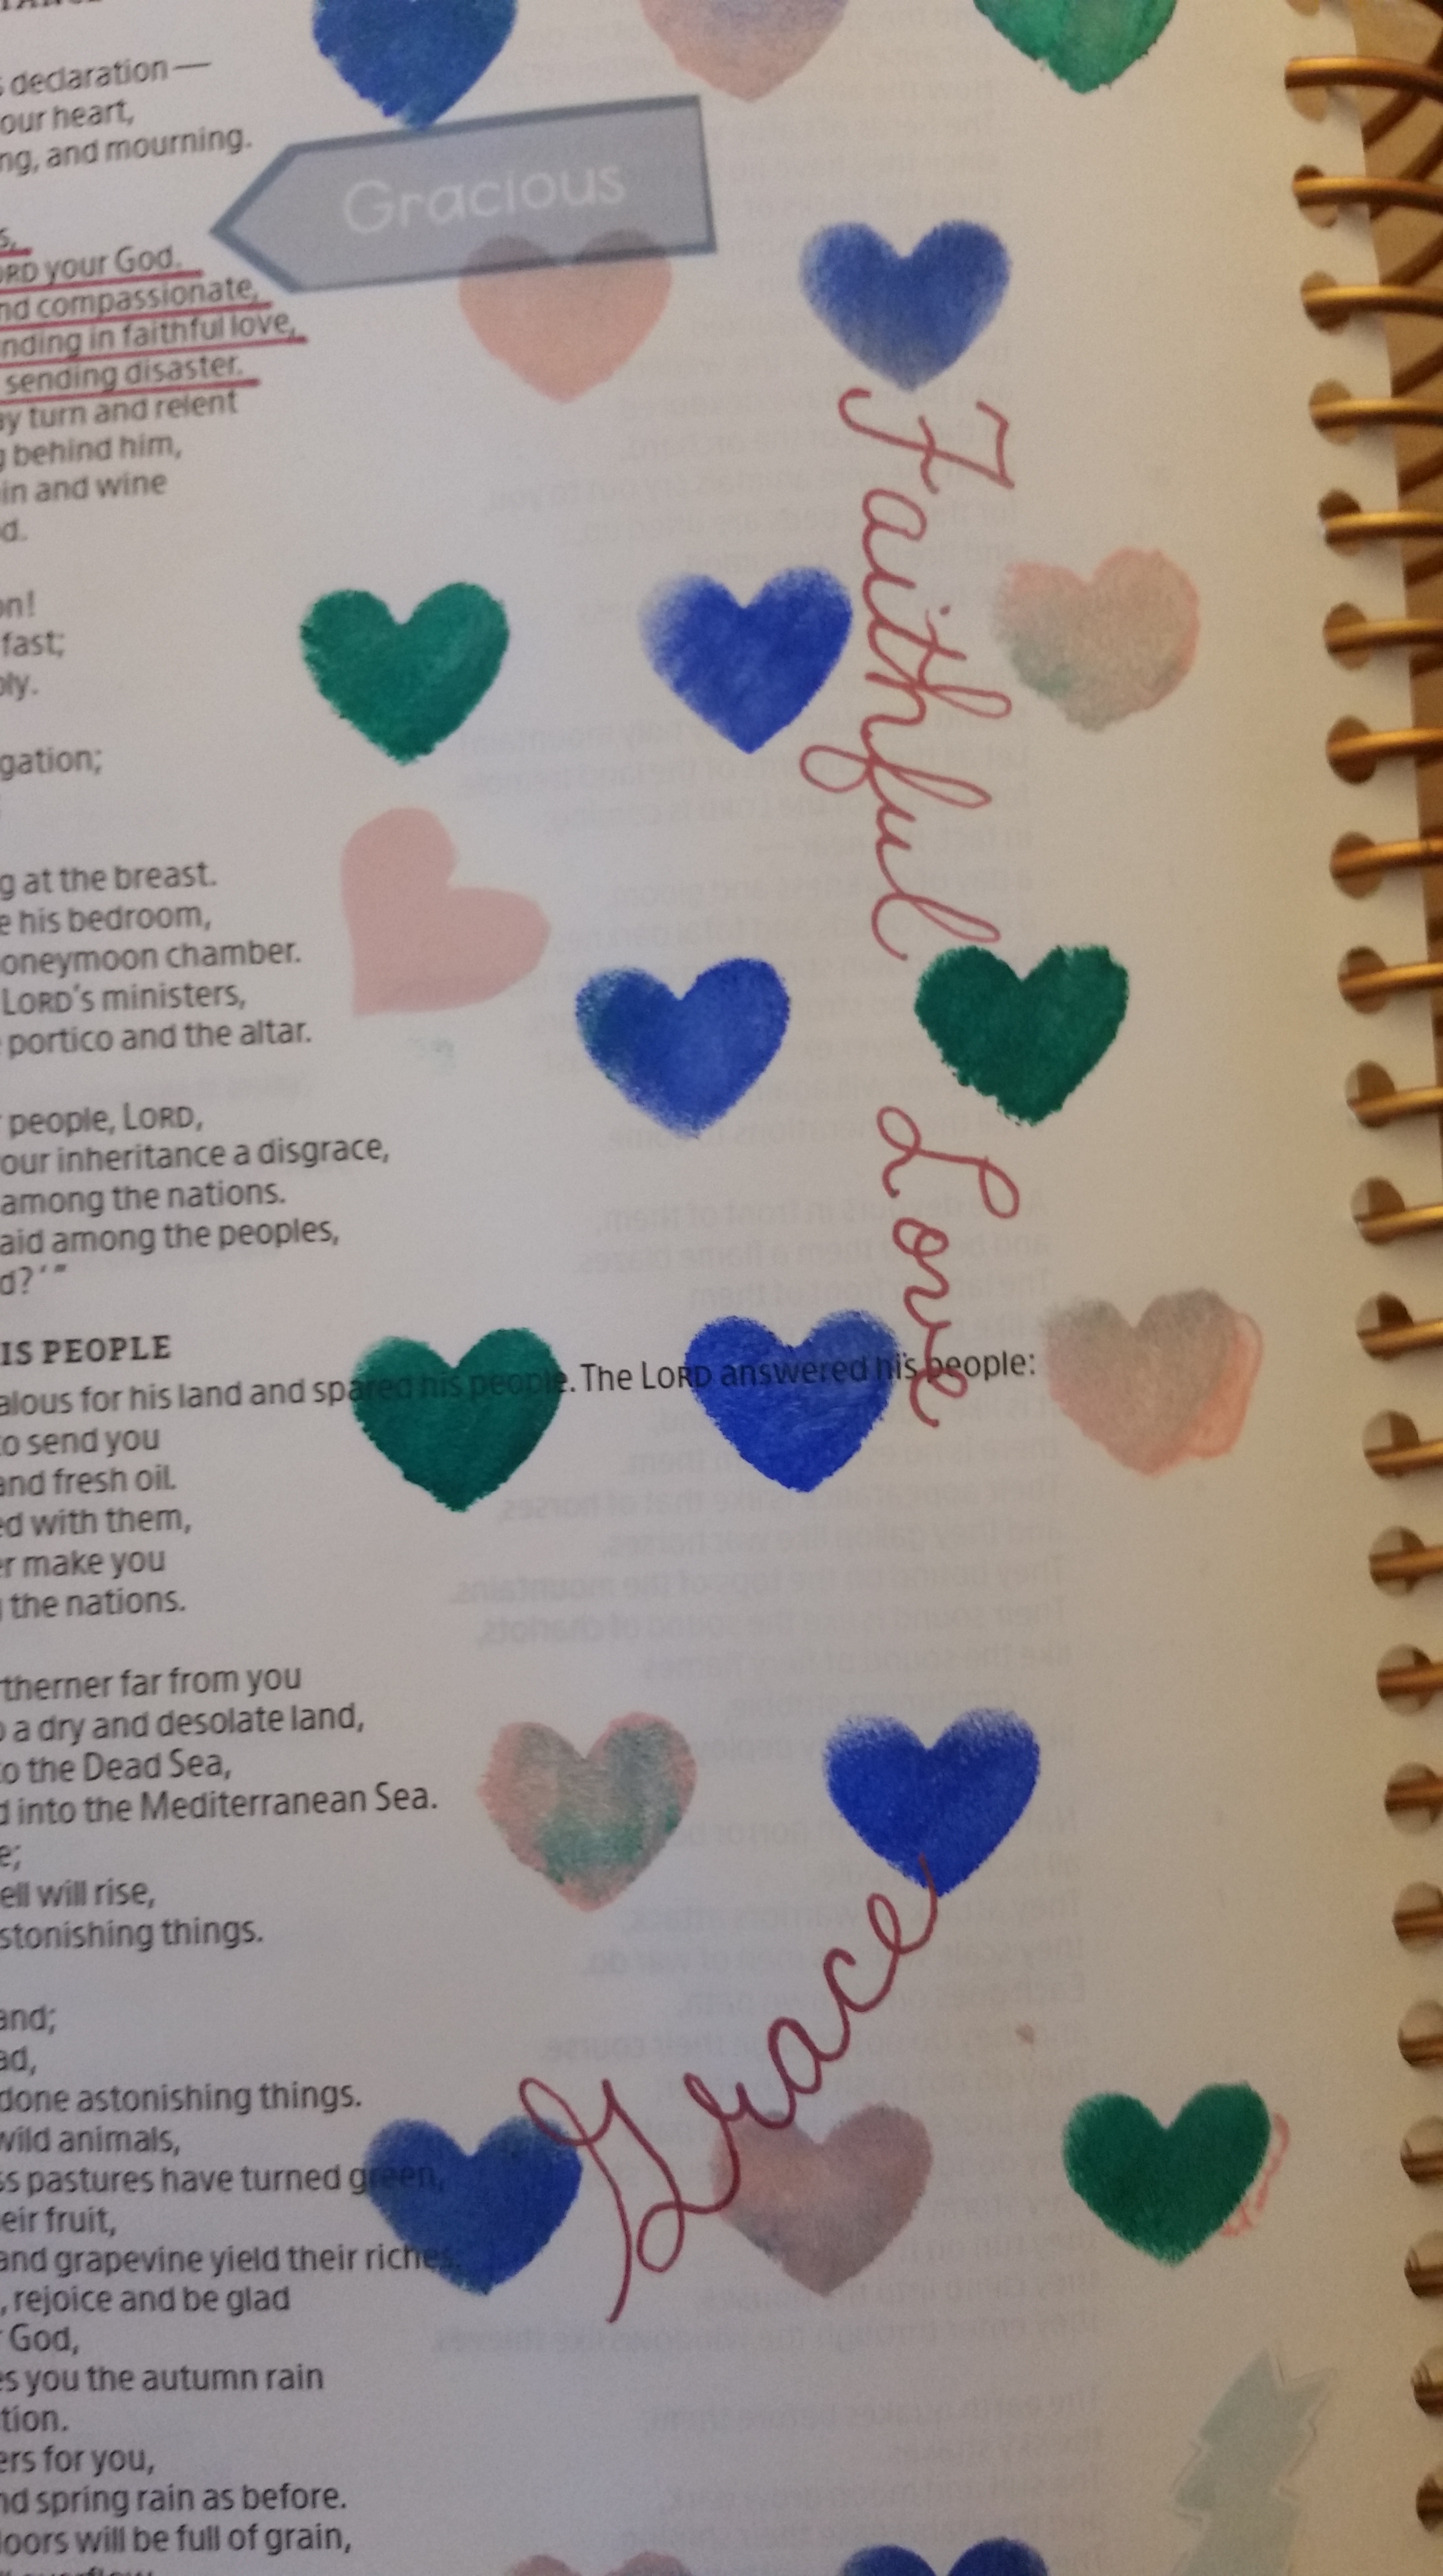 declaration—
our heart,
ng, and mourning.
Gracious
s,
ORD your God.
nd compassionate,
nding in faithful love,
sending disaster.
ay turn and relent
g behind him,
in and wine
d.
on!
fast;
bly.
gation;
g at the breast.
e his bedroom,
oneymoon chamber.
LORD's ministers,
portico and the altar.
people, LORD,
our inheritance a disgrace,
among the nations.
aid among the peoples,
d?'"
IS PEOPLE
alous for his land and spared his people. The LORD answered his people:
to send you
and fresh oil.
ed with them,
er make you
the nations.
rtherner far from you
o a dry and desolate land,
to the Dead Sea,
d into the Mediterranean Sea.
e;
ell will rise,
stonishing things.
and;
ad,
done astonishing things.
wild animals,
ss pastures have turned green,
eir fruit,
and grapevine yield their riches.
, rejoice and be glad
God,
es you the autumn rain
tion.
ers for you,
nd spring rain as before.
loors will be full of grain,
Faithful Love
Grace